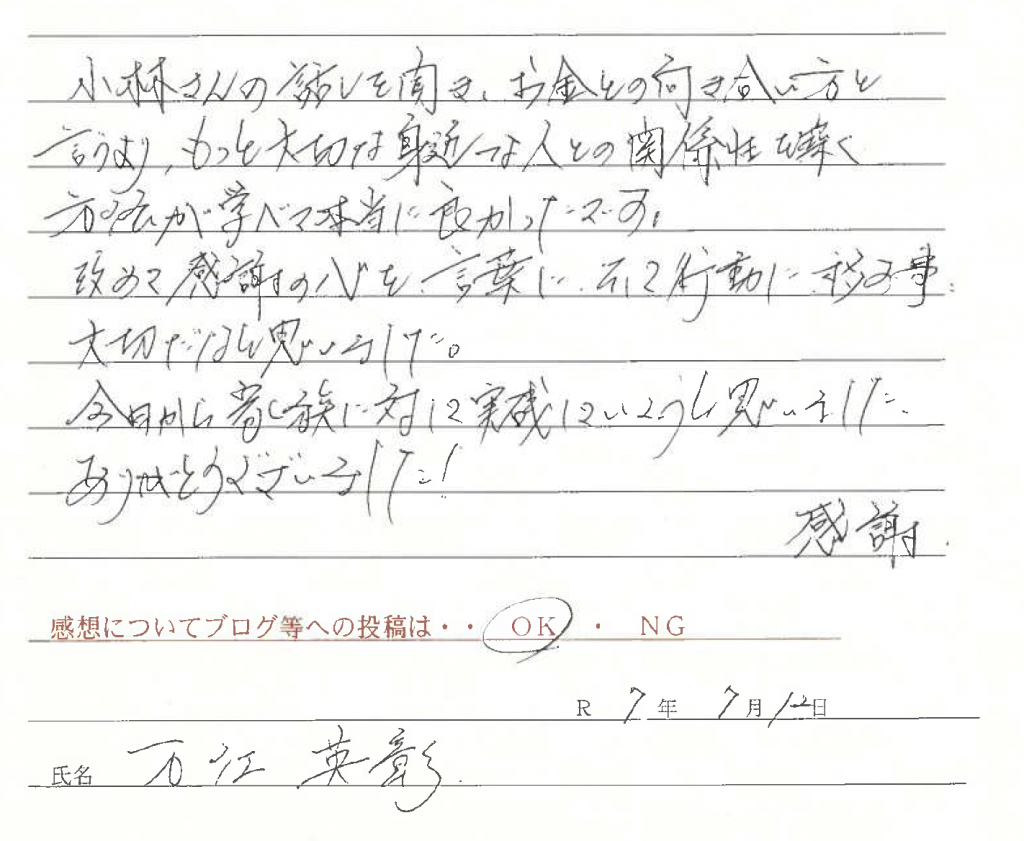 小林さんの話しを聞き、お金との向き合い方と
言うより、もっと大切な身近な人との関係性を築く
方法が学べて本当に良かったです。
改めて感謝の心を言葉に、そして行動に移す事
大切だなと思いました。
今日から家族に対して実践していこうと思いました、
ありがとうございました!
感謝.
感想についてブログ等への投稿は・・ OK ・ NG
R 7年 7月12日
氏名 万江 英彰.